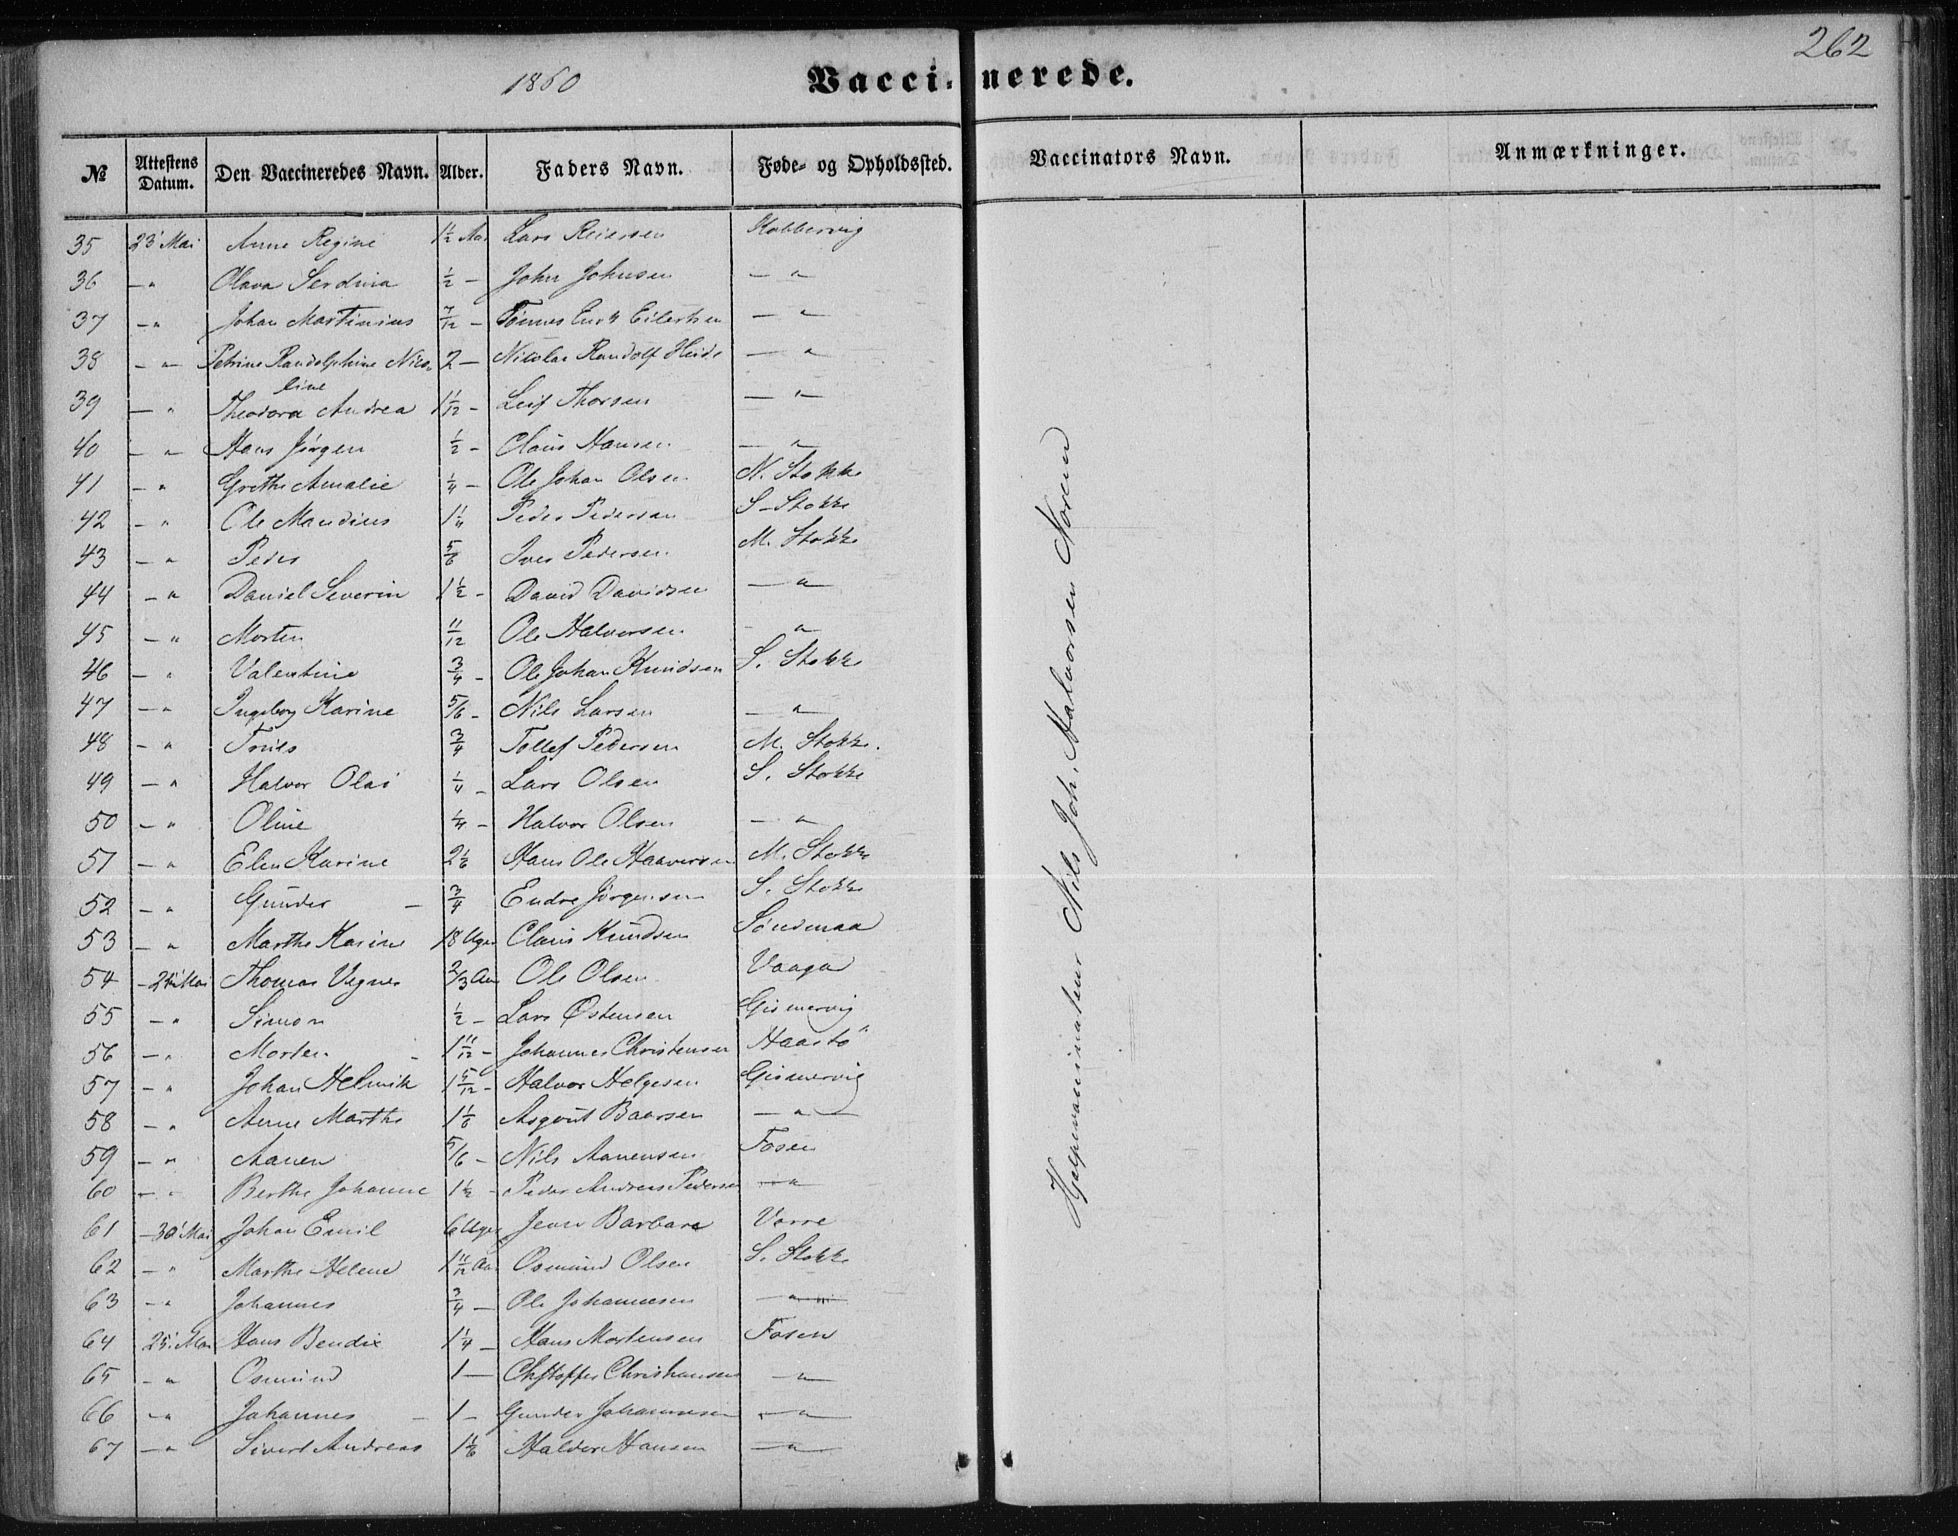 262
1860 Vaccinerede.
№ Attestens Datum. Den Vaccineredes Navn. Alder. Faders Navn. Føde- og Opholdssted. Vaccinators Navn. Anmærkninger.
35 23' Mai Anne Regine 1½ Aar Lars Reiersen Kobbervig
36 — " Olava Serdina ½ — John Johnsen — " —
37 — " Johan Martinius 7/12 — Tønnes Eilertsen — "
38 — " — Petrine Randolphine Nico- 2 — Nicolai Randolf Heide — "
line
39 — " Theodora Andrea 1 1/12 — Leif Thorsen — " —
40 — " — Hans Jørgen ½ — Claus Hansen — " —
41 — " Grethe Amalie ¼ — Ole Johan Olsen N. Stokke
42 — " Ole Mandius 1¼ Peder Pedersen S. Stokke
43 — " Peder 5/6 Iver Pedersen M. Stokke
44 — " Daniel Severin 1½ — David Davidsen — " —
45 — " Morten 11/12 Ole Halvorsen — "
46 — " Valentine ¾ — Ole Johan Knudsen S. Stokke
47 — " Ingeborg Karine 5/6 — Nils Larsen — " —
48 — " Truls ¾ Tollef Pedersen M. Stokke.
49 — " Halvor Olai ¼ — Lars Olsen S. Stokke
50 — " Oline ¼ — Halvor Olsen — "
51 — " Elen Karine 2 1/6 Hans Ole Haaversen M. Stokke
52 — " Gunder — ¾ Endre Jørgensen S. Stokke
53 — " Marthe Karine 18 Uger Claus Knudsen Søndenaa
54 — 24' Mai Thomas Vegner 2/3 Aar Ole Olsen Vaaga
55 — " Simon ½ — Lars Østensen Gismervig
56 — " Morten 1 11/12 — Johannes Christensen Haastø
57 — " Johan Helmik 1 5/12 — Halvor Helgesen Gismervig
58 — " Anne Marthe 1 1/6 Asgout Baarsen — " —
59 — " Aanen 5/6 — Nils Aanensen Fosen
60 — " Berthe Johanne 1½ — Peder Andreas Pedersen — "
61 — 30' Mai Johan Emil 6 Uger Jens Barbara Vorre
62 — " Marthe Helene 1 11/12 Aar Osmund Olsen S. Stokke
63 — " Johannes ¾ — Ole Johannesen — " —
64 25' Mai Hans Bendix 1¼ — Hans Mortensen Fosen
65 — " Osmund 1 — Chstoffer Christiansen — "
66 — " Johannes — 1 — Gunder Johannesen — " —
67 — " Sivert Andreas 1 1/6 Haldor Hansen — " —
Hjelpevaccinateur Nils Joh. Halvorsen Noreim